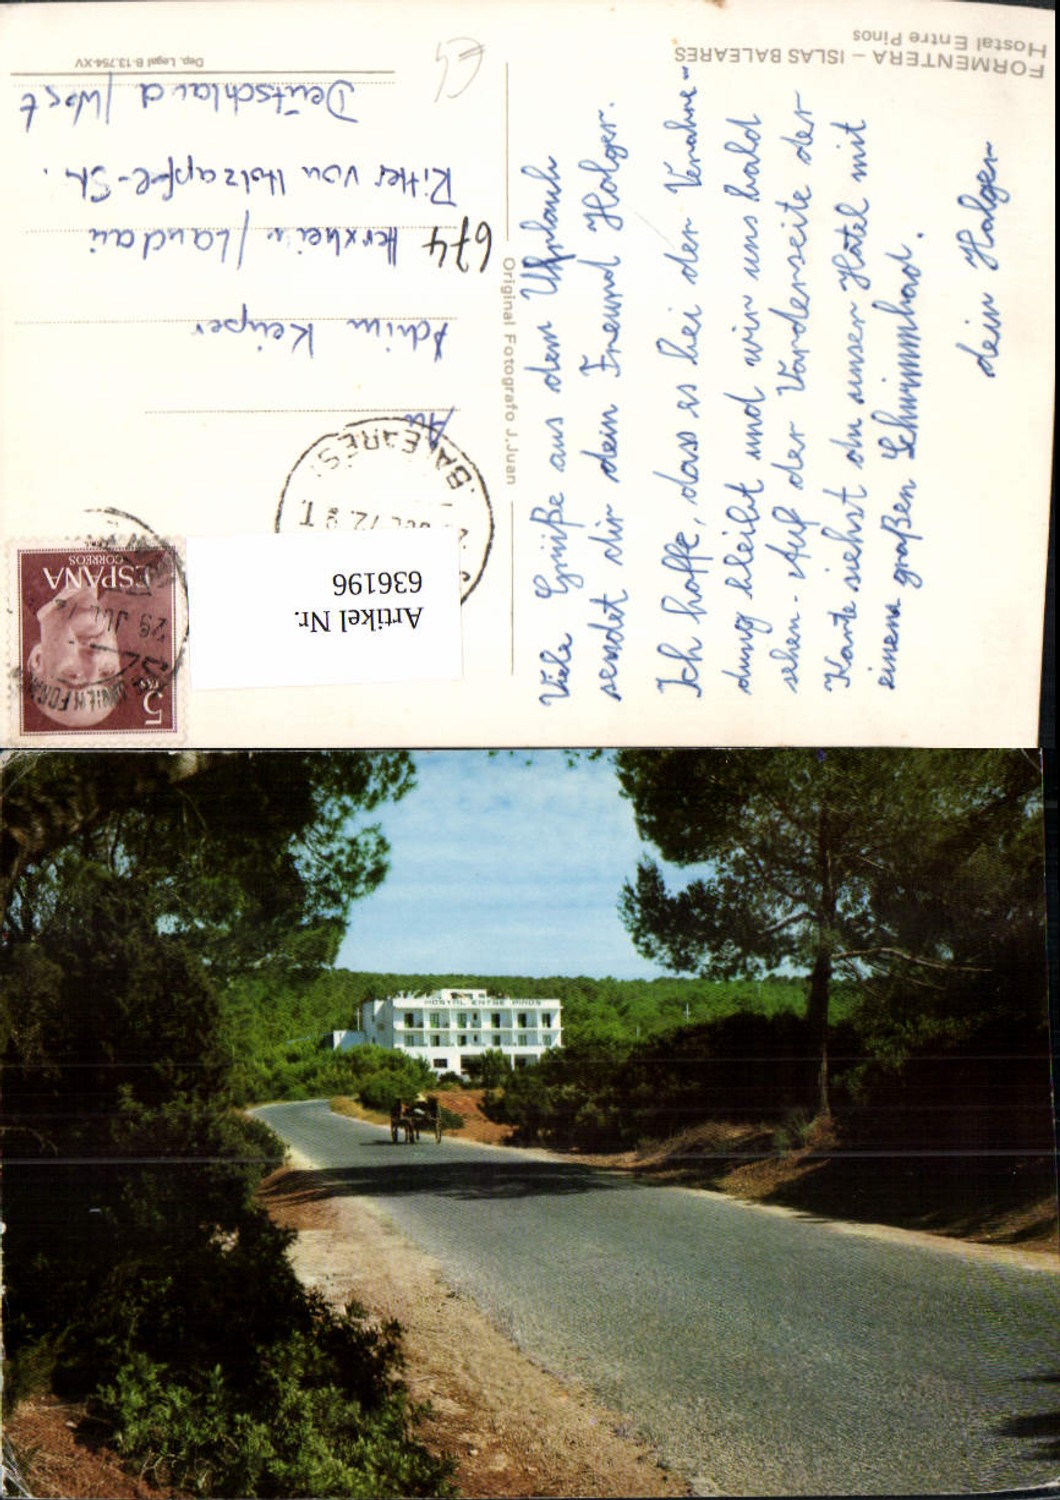 FORMENTERA – ISLAS BALEARES
Hostal Entre Pinos
Viele Grüße aus dem Urlaub
sendet dir dein Freund Holger.
Ich hoffe, dass es bei der Verabre-
dung bleibt und wir uns bald
sehen. Auf der Vorderseite der
Karte siehst du unser Hotel mit
einem großen Schwimmbad.
dein Holger
Original Fotografo J. Juan
5
PTAS
ESPAÑA
CORREOS
29 JUL
BALEARES
Artikel Nr.
636196
An
Achim Keiper
674 Herxheim/Landau
Ritter von Holzapfel-Str.
Deutschland/West
Dep. Legal B-13.754-XV
HOSTAL ENTRE PINOS